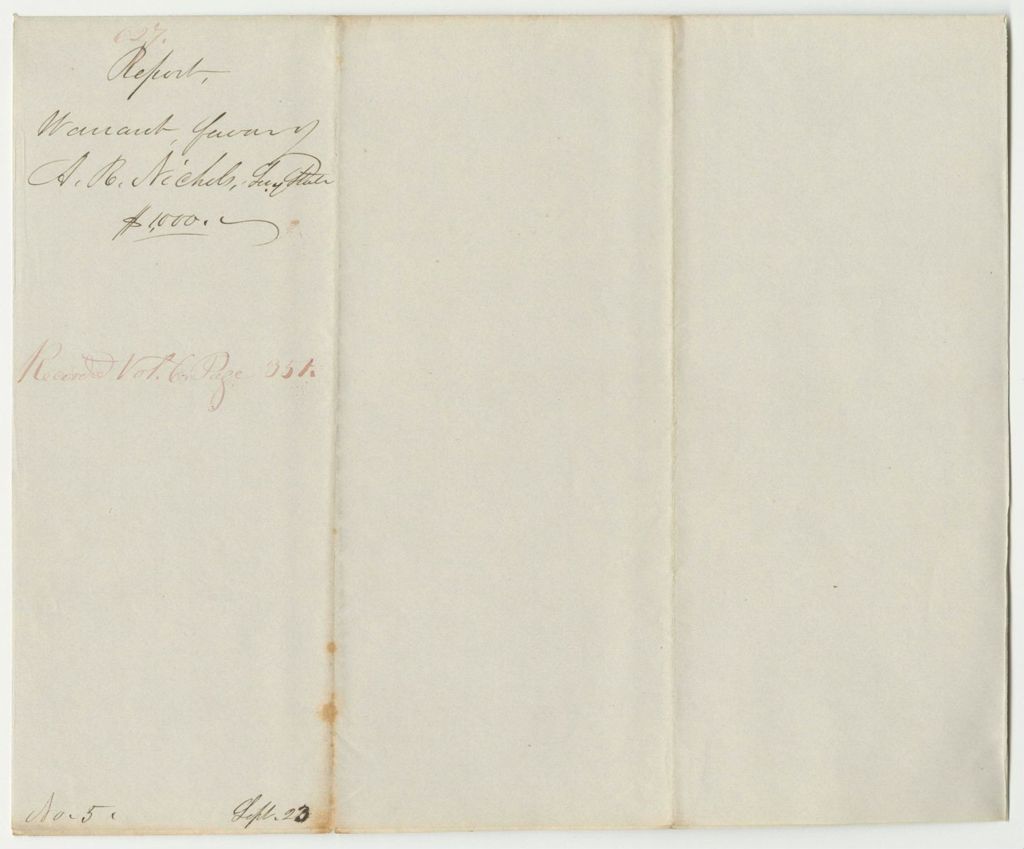 627.
Report,
Warrant, favor of
A. R. Nichols, Secy State
$1,000.
Recorded Vol. 6. Page 351.
No. 5.
Sept. 23